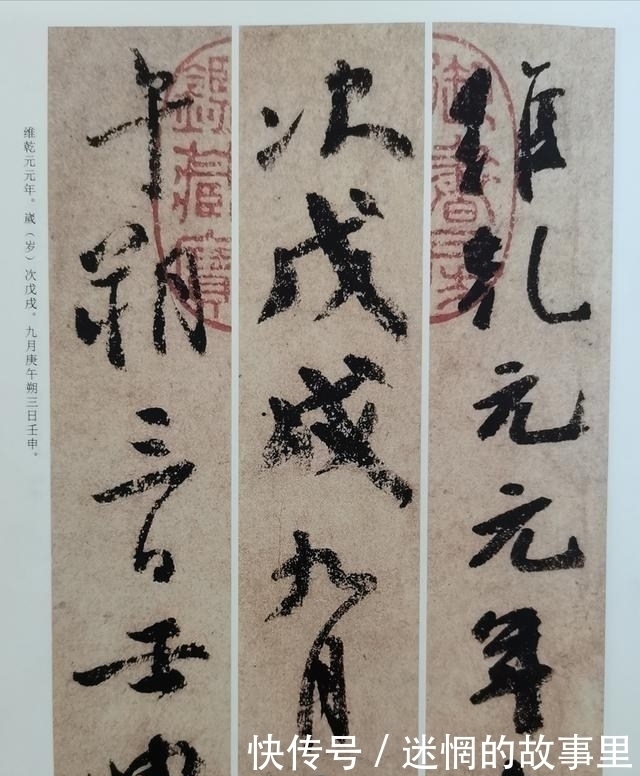 维乾元元年
次戊戌九月
午朔三日壬申
维乾元元年。歲（岁）次戊戌。九月庚午朔三日壬申。
快传号 / 迷惘的故事里